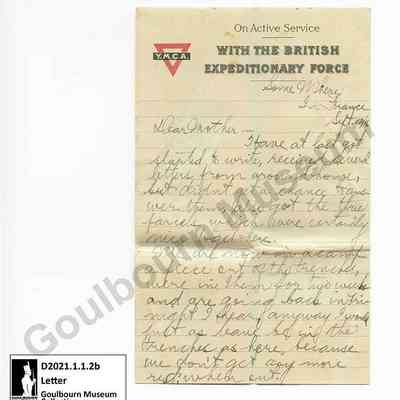 On Active Service
WITH THE BRITISH
EXPEDITIONARY FORCE
Y.M.C.A.
Some Where
In France
Sept.
Dear Mother —
Have at last got
started to write, received several
letters from
but didn't get a chance to ans-
wer them. Also got the three
parcels which have certainly
been
We are now in a camp
a piece out of the trenches,
were in them for two weeks
and are going back in to-
night I hear, anyway I would
just as leave be in the
trenches as here, because
we don't get any more
out.
Goulbourn Museum
D2021.1.1.2b
Letter
Goulbourn Museum